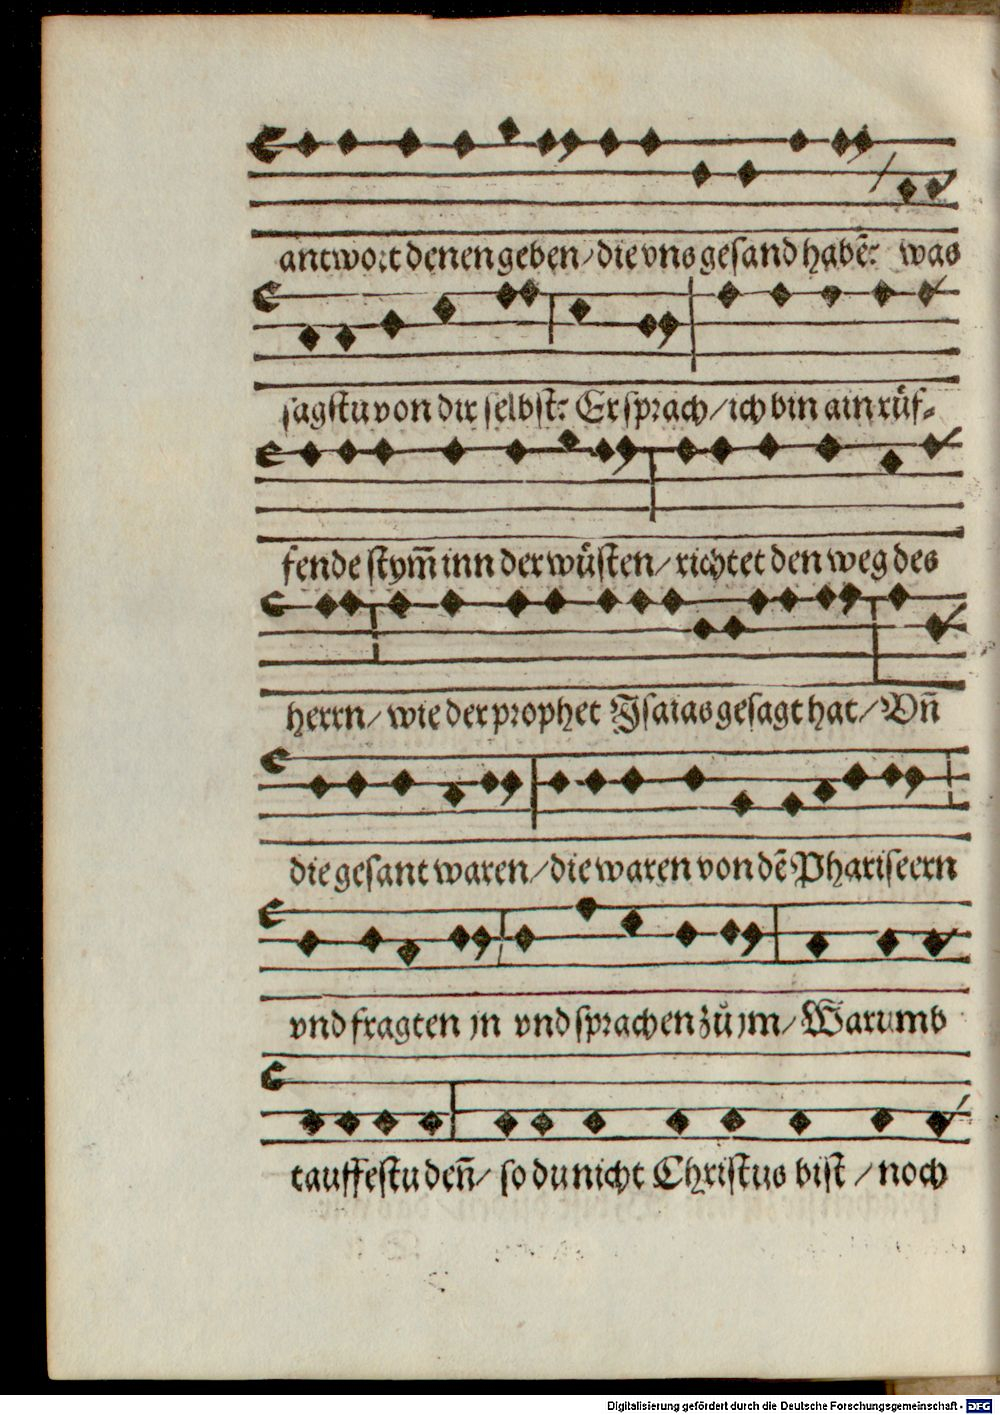 antwort denen geben/ die vns gesand habē: was
sagstu von dir selbst: Er sprach/ ich bin ain rüf⸗
fende stym̄ inn der wůsten/ richtet den weg des
herrn/ wie der prophet Jsaias gesagt hat/ Vn̄
die gesant waren/ die waren von dē Phariseern
vnd fragten jn vnd sprachen zů jm/ Warumb
tauffestu den̄/ so du nicht Christus bist / noch
Digitalisierung gefördert durch die Deutsche Forschungsgemeinschaft - DFG